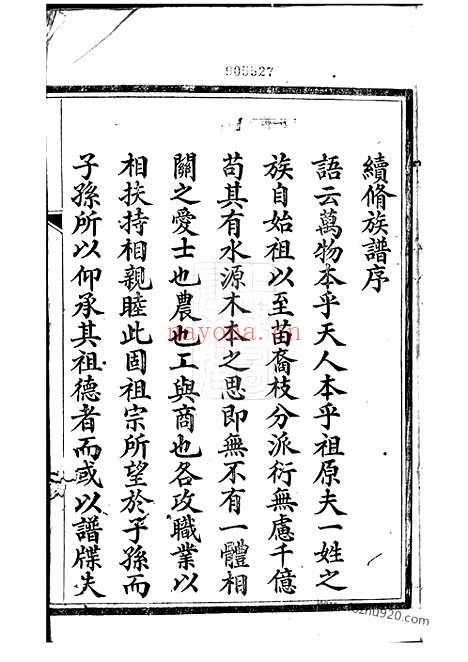 905527
續脩族譜序
語云萬物本乎天人本乎祖原夫一姓之
族自始祖以至苗裔枝分派衍無慮千億
苟其有水源木本之思即無不有一體相
關之愛士也農也工與商也各攻職業以
相扶持相親睦此固祖宗所望於子孫而
子孫所以仰承其祖德者而或以譜牒失
nayona.cn